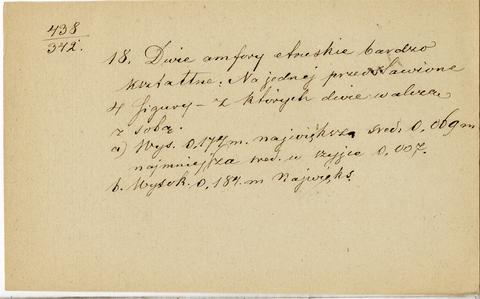 438
342.
18. Dwie amfory etruskie bardzo
kształtne. Na jednej przedstawione
4 figury - z których dwie walczą
z sobą.
a) Wys. 0,177 m. największa śred. 0,069 m
najmniejsza śred. w szyjce 0,007.
b. Wysok. 0,184 m Najwięks.